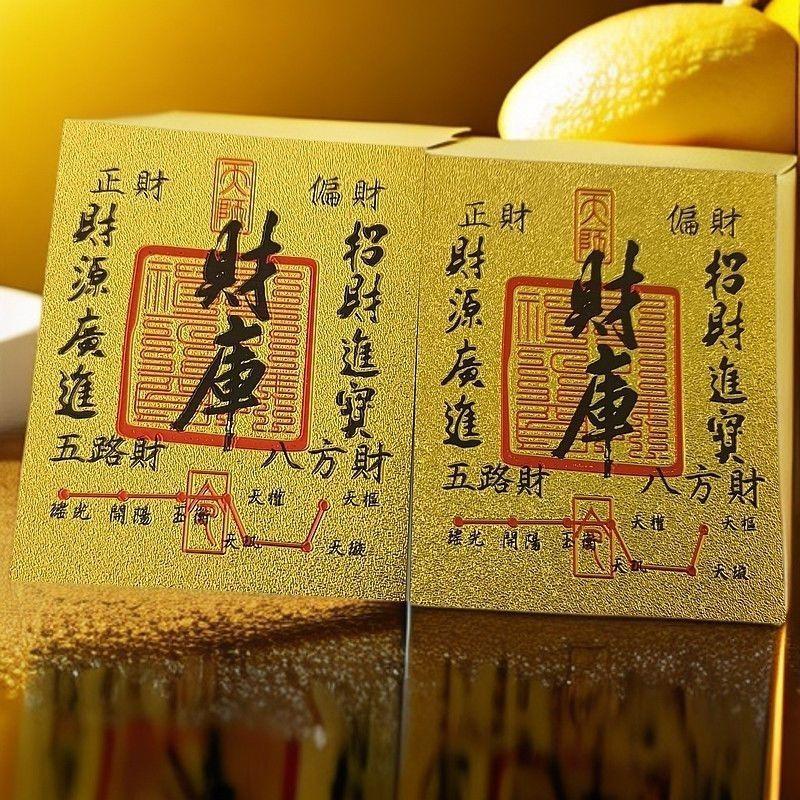 正財
天師
偏財
財源廣進
財庫
招財進寶
五路財
八方財
瑤光
開陽
玉衡
天權
天樞
天璇
令
正財
天師
偏財
財源廣進
財庫
招財進寶
五路財
八方財
瑤光
開陽
玉衡
天權
天樞
天璇
令